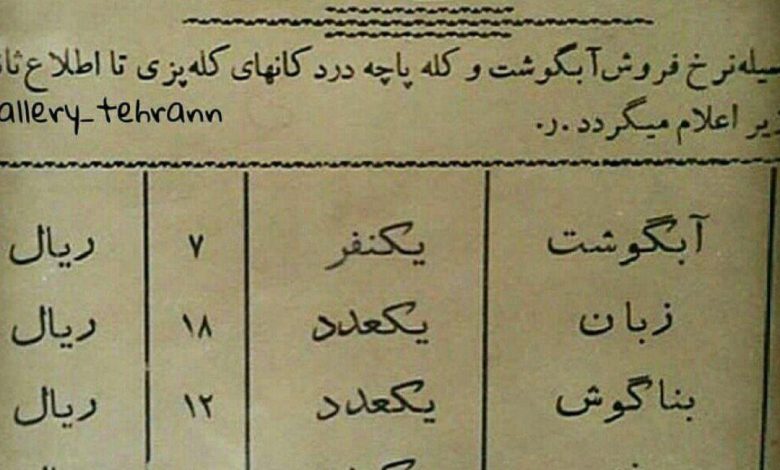 نرخ فروش آبگوشت و کله پاچه در دکانهای کله‌پزی تا اطلاع
allery_tehrann
اعلام میگردد.ر.
آبگوشت یکنفر ۷ ریال
زبان یکعدد ۱۸ ریال
بناگوش یکعدد ۱۲ ریال